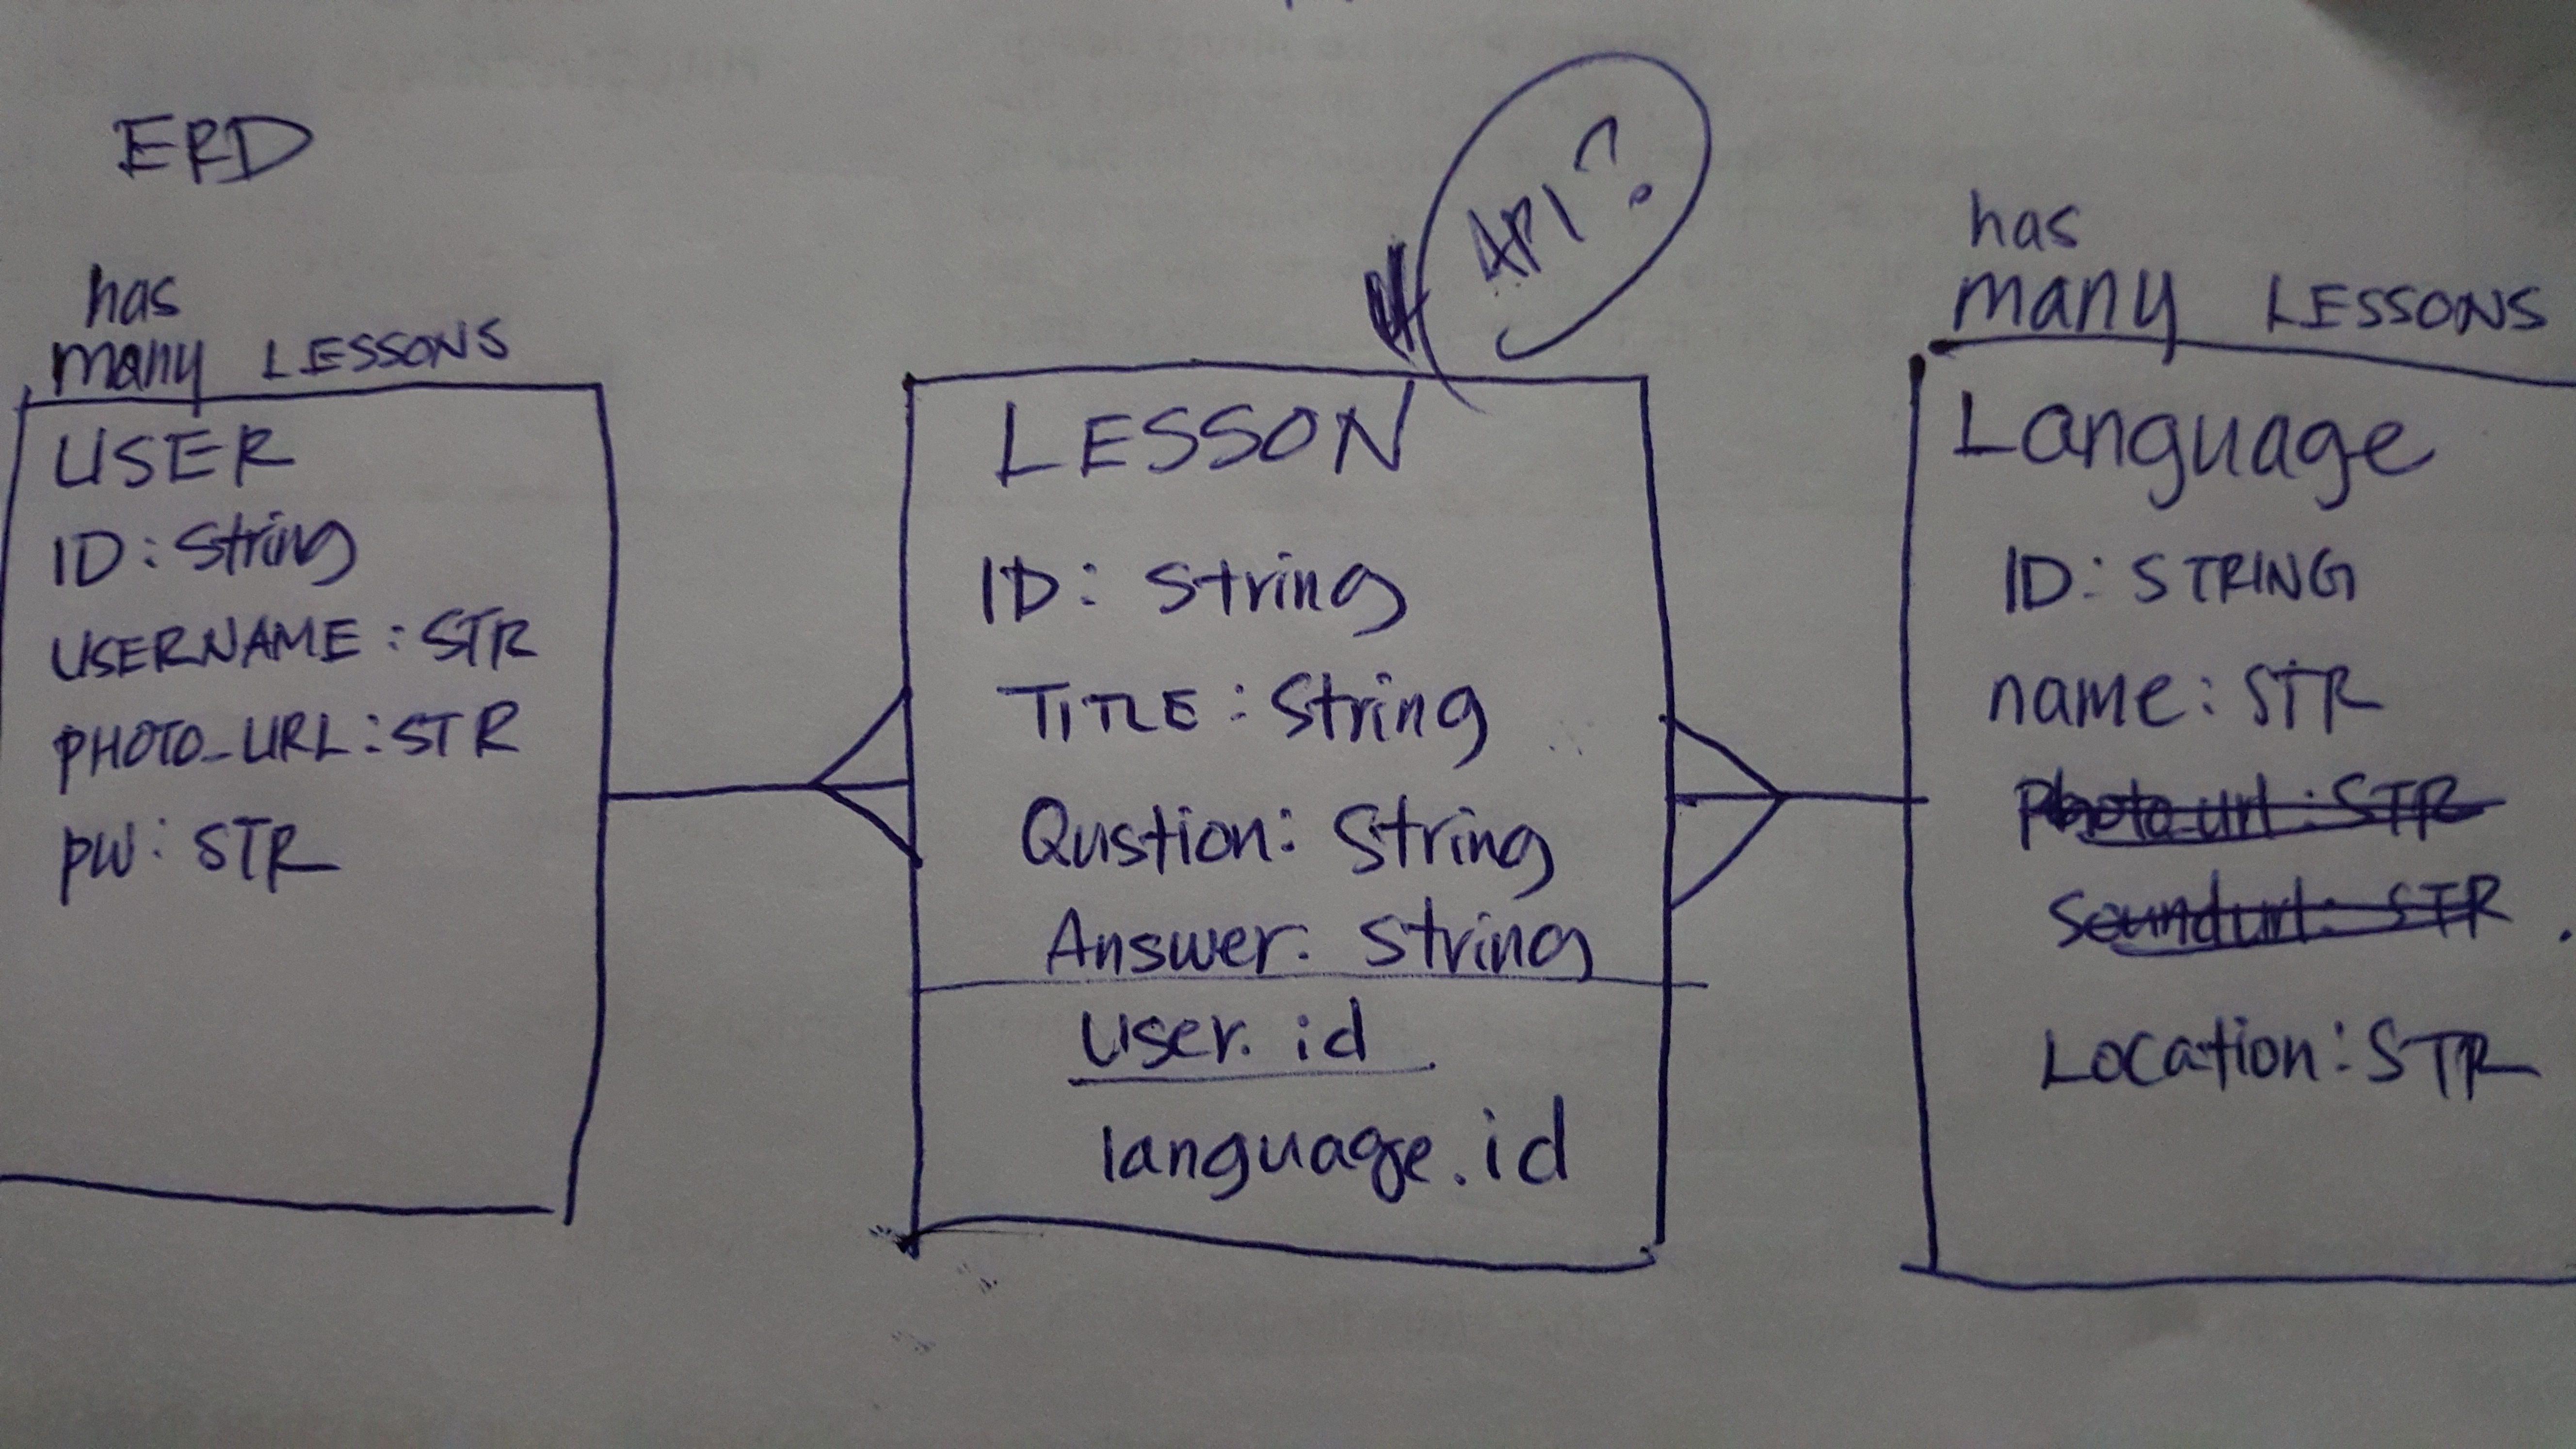 ERD
has
many LESSONS
USER
ID: String
USERNAME: STR
PHOTO_URL: STR
PW: STR
API?
LESSON
ID: String
TITLE: String
Qustion: String
Answer: String
User.id
language.id
has
many LESSONS
Language
ID: STRING
name: STR
Photo_url: STR
Soundurl: STR
Location: STR